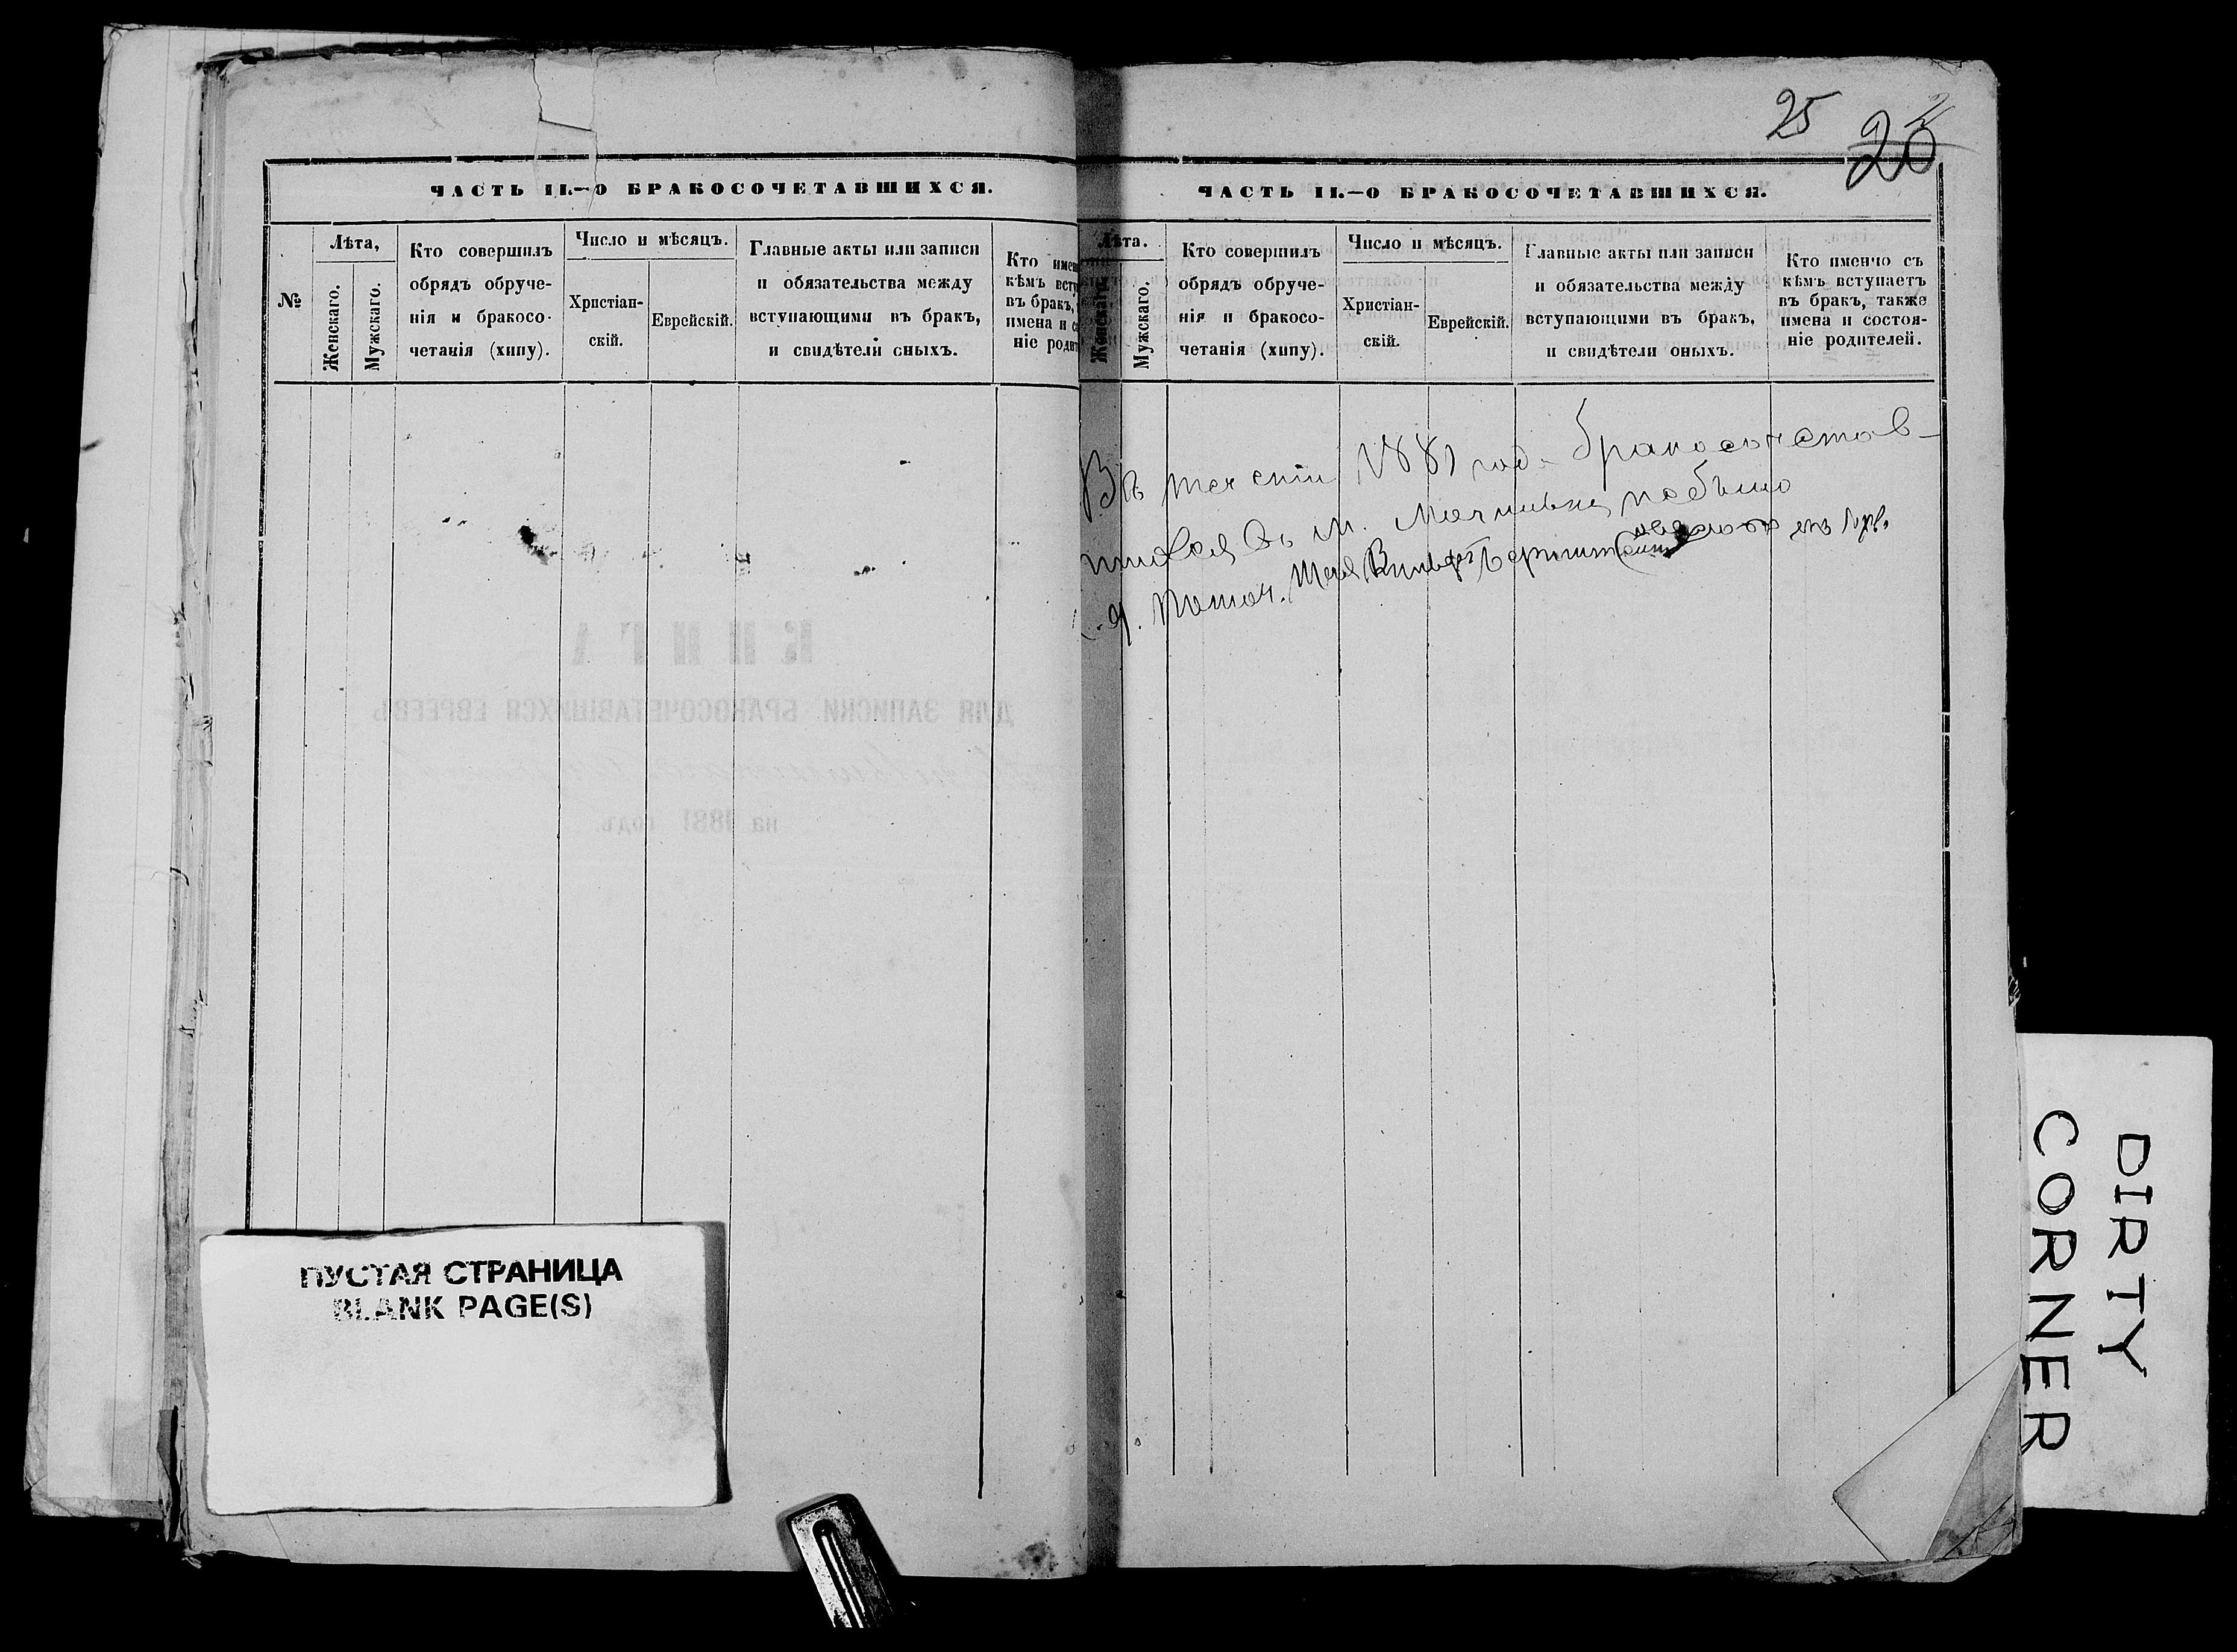 ЧАСТЬ II.—О БРАКОСОЧЕТАВШИХСЯ.
№
Лѣта,
Женскаго.
Мужскаго.
Кто совершилъ
обрядъ обруче-
нія и бракосо-
четанія (хипу).
Число и мѣсяцъ.
Христіан-
скій.
Еврейскій.
Главные акты или записи
и обязательства между
вступающими въ бракъ,
и свидѣтели оныхъ.
Кто имен
кѣмъ всту
въ бракъ,
имена и со
ніе родит
ПУСТАЯ СТРАНИЦА
BLANK PAGE(S)
25
ЧАСТЬ II.—О БРАКОСОЧЕТАВШИХСЯ.
Лѣта.
Женскаго.
Мужскаго.
Кто совершилъ
обрядъ обруче-
нія и бракосо-
четанія (хипу).
Число и мѣсяцъ.
Христіан-
скій.
Еврейскій.
Главные акты или записи
и обязательства между
вступающими въ бракъ,
и свидѣтели оныхъ.
Кто именно съ
кѣмъ вступаетъ
въ бракъ, также
имена и состоя-
ніе родителей.
Въ теченіи 1881 года бракосочетав-
шихся въ м. небыло
DIRTY
CORNER
КНИГА
ДЛЯ ЗАПИСКИ БРАКОСОЧЕТАВШИХСЯ ЕВРЕЕВЪ
на 1881 годъ.